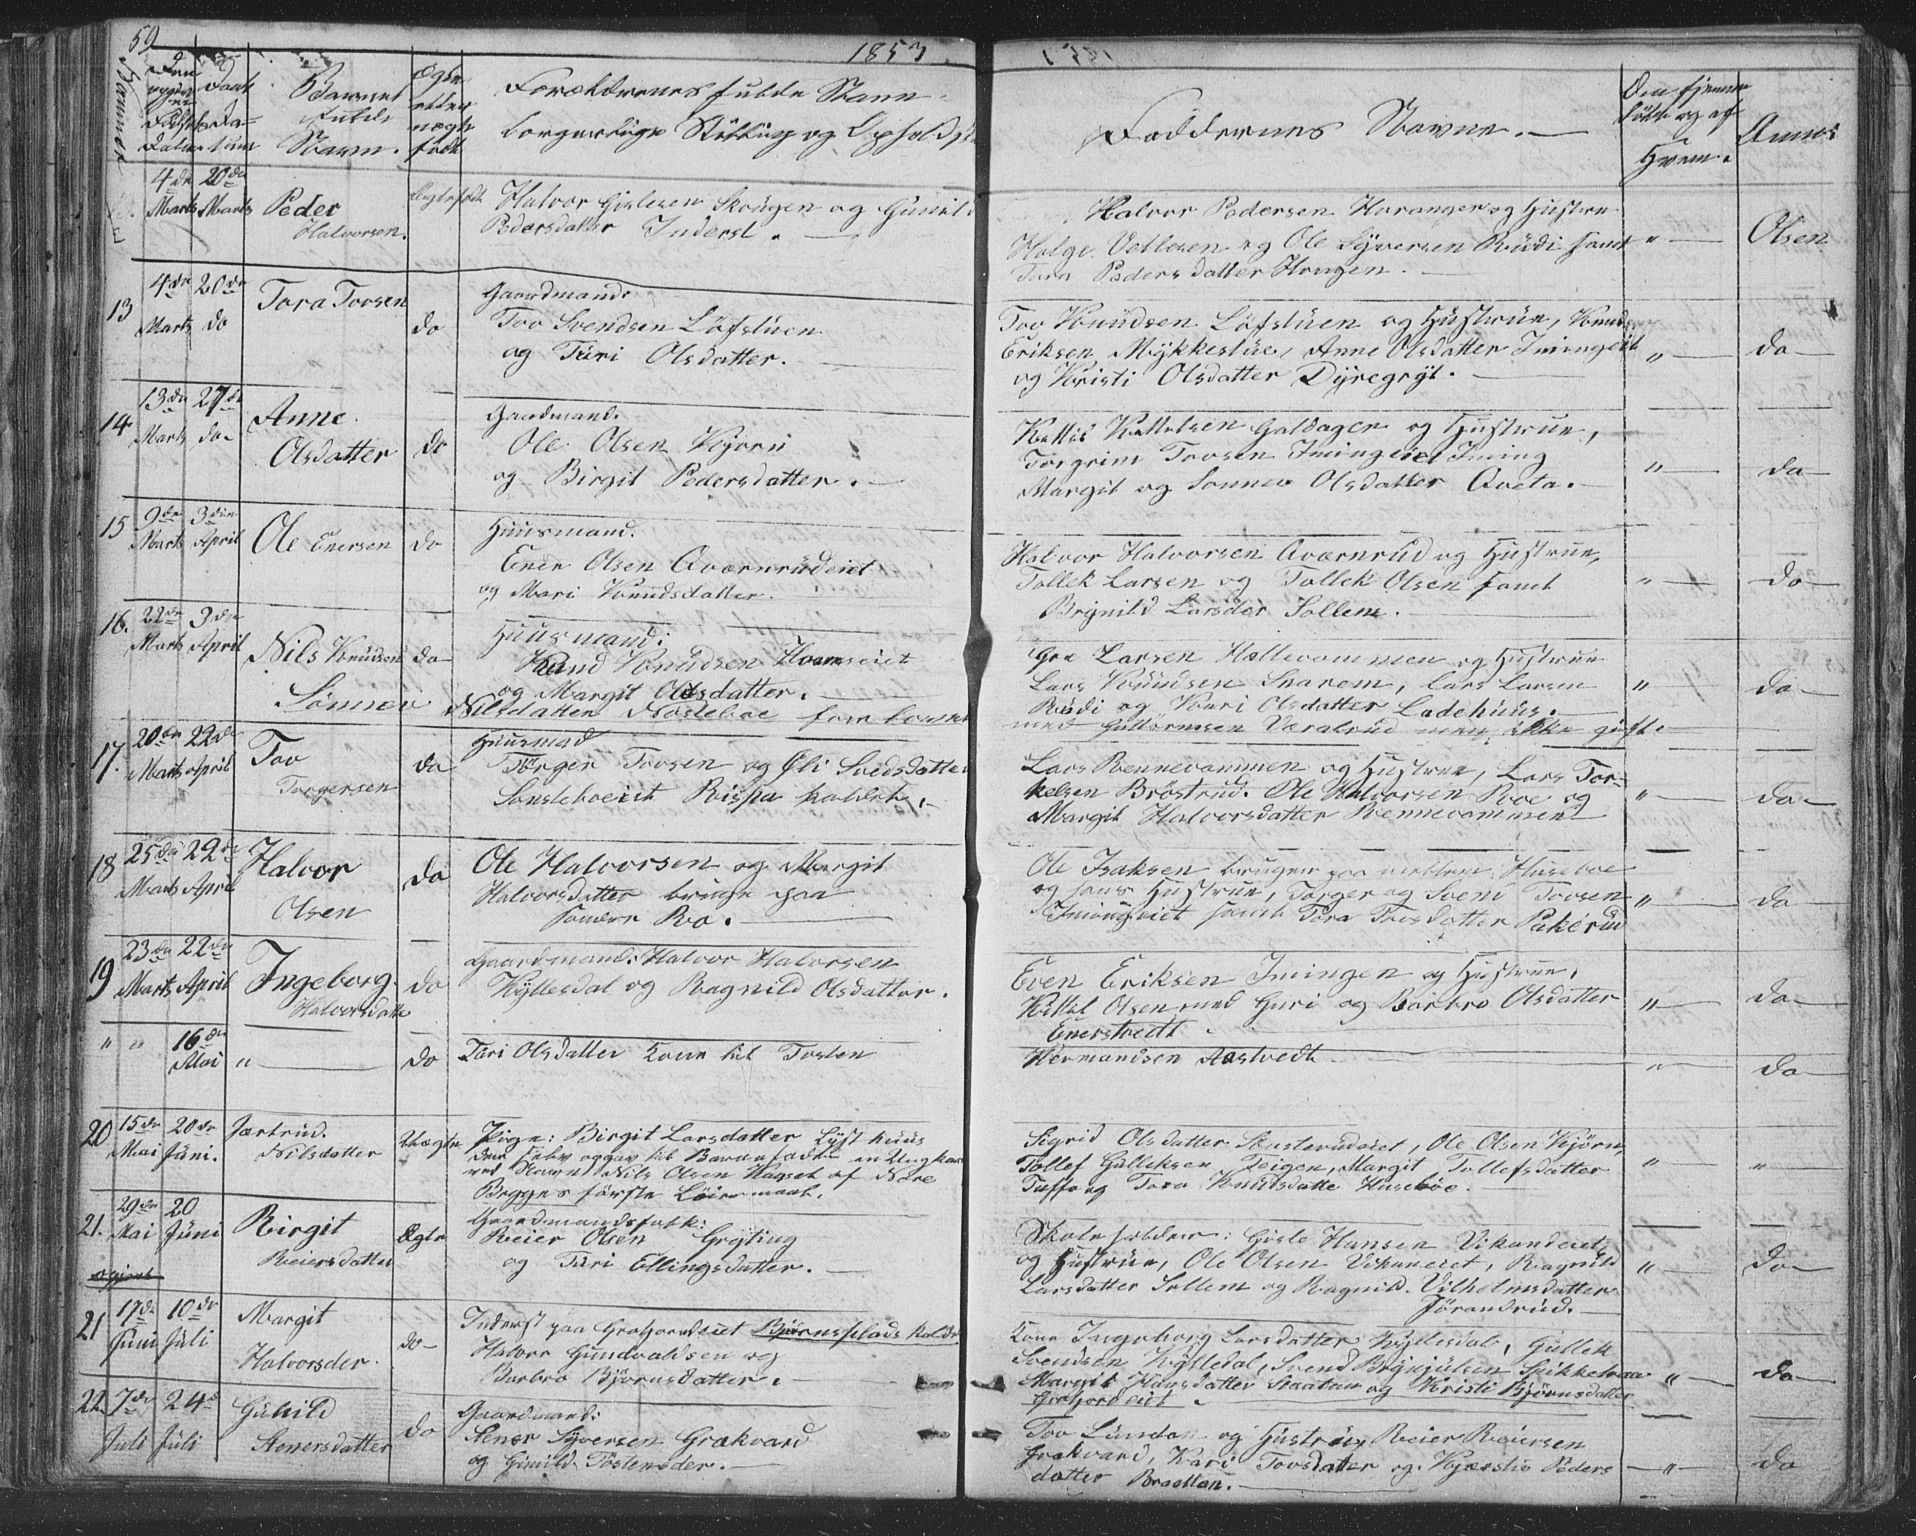 59
1853
Barnets fulde Navn.
Ægte eller uægte født
Forældrenes fulde Navn
borgerlige Stilling og Opholdst
Faddernes Navne.
Hvem.
4de Marts 20de Marts Peder Halvorsen. Ægtefødt Halvor Gislesen Skougen og Gunild
Pedersdatter Inderst.
Halvor Pedersen Horanger og Hustrue
Helge Vetlesen og Ole Syversen Rudi samt
Pedersdatter Hougen.
" Olsen
13 4de Marts 20de do Tora Tovsen do Gaardmand:
Tov Svendsen Löfstuen
og Turi Olsdatter.
Tov Knudsen Löfstuen og Hustrue, Knud
Eriksen Mykkestue, Anne Olsdatter Imingeiet
og Kristi Olsdatter Dyregryt.
" do
14 13de Marts 27de do Anne Olsdatter do Gaardmand.
Ole Olsen Kjørn
og Birgit Pedersdatter.
Kittil Kittelsen Haldager og Hustrue,
Torgrim Tovsen Imingeiet Iming
Margit og Sønnev Olsdatter Aveta.
" do
15 9de Marts 3die April Ole Enersen do Huusmand.
Ener Olsen Aværnrudeiet
og Mari Knudsdatter.
Halvor Halvorsen Aværnrud og Hustrue,
Tollek Larsen og Tollek Olsen samt
Brynild Larsder Sollem.
" do
16. 22de Marts 3die April Nils Knudsen do Huusmand:
Knud Knudsen Hvamseiet
og Margit Olsdatter.
Gre Larsen Hallevammen og Hustrue
Lars Knudsen Snarem, Lars Larsen
Rudi og Kari Olsdatter Ladehuus.
" do
Sönnev Nilsdatter Nosteboe som kone
med Guttormsen Væralrud men ikke gift.
17. 20de Marts 22de April Tov Torgersen do Huusmad
Törger Tovsen og Oli Svedsdatter
Sönsteboeiet Rispa kaldet.
Lars Rennevammen og Hustrue, Lars Tor-
kelsen Brøstrud. Ole Halvorsen Roe og
Margit Halvorsdatter Rennevammen
" do
18 25de Marts 22de April Halvor Olsen do Ole Halvorsen og Margit
Halvorsdatter bruge paa
Ro.
Ole Isaksen bruger paa mellem Huseboe
og hans Hustrue, Torger og Sveni Tovsen
Imingseiet samt Tora Tovsdatter Pakerud
" do
19 23de Marts 22de April Ingeborg Halvorsdatte do Gaardmand: Halvor Halvorsen
Kyllesdal og Ragnild Olsdatter.
Even Eriksen Imingen og Hustrue,
Kittil Olsen med Guri og Barbro Olsdatter
Enerstvedt.
" do
" " 16de Mai " do Turi Olsdatter Kone til Tosten
Hermandsen Aastvedt.
" do
20 15de Mai 20de Juni. Jærtrud. Nilsdatter Uægte Pige: Birgit Larsdatter Lysthuus
der selv opgav til Barnefader en Ungkar
ved Navn Nils Olsen Hagset af Nore
Begges første Leiermaal.
Sigrid Olsdatter Skusterudeiet, Ole Olsen Kjørn,
Tollef Gulleksen Teigen, Margit Tollefsdatter
Tuff og Tora Knudsdatte Huseböe.
" "
21. 29de Mai 20 Juni Birgit Reiersdatter Ægte Gaardmandsfolk:
Reier Olsen Gryting
og Turi Ellingsdatter.
Skoleholder: Gisle Hansen Vikandeiet
og Hustrue, Ole Olsen Vikaneiet, Ragnild
Larsdatter Sollem og Ragnild Vilhelmsdatter
Jørandrud.
" do
21 17de Juni 10de Juli Margit Halvorsder do Inderst paa Grofjordeiet Bjørnsplads kaldt
Halvor Gundvaldsen og
Barbro Bjørnsdatter.
Kone Ingeborg Larsdatter Kyllesdal, Gullek
Svendsen Kylledal, Svend Brynjulsen Spikkelvaa
Margit Hansdatter Staaten og Kristi Bjørnsdatter
Grofjordeiet.
" do
22. 7de Juli 24de Juli Gunild Stenersdatter do Gaardmand:
Stener Syversen Grakvard
og Gunild Tostensder.
Tov Lundan og Hustrue, Reier Reiersen
Grakvard, Kari Tovsdatter og Kjærstie Peders
datter Braattan.
" do